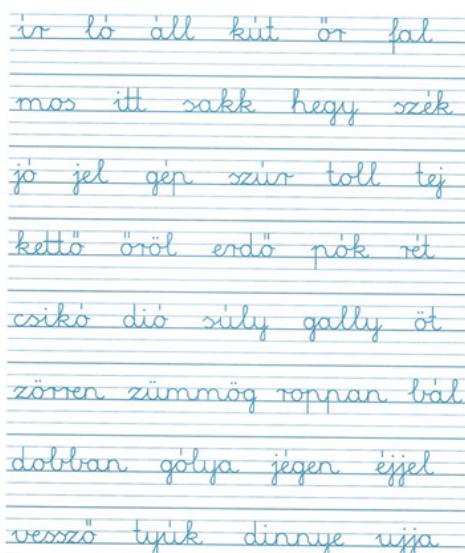 ír ló áll kút őr fal
mos itt sakk hegy szék
jó jel gép szúr toll tej
kettő őröl erdő pók rét
csikó dió súly gally öt
zörren zümmög roppan bál
dobban gólya jégen éjjel
vessző tyúk dinnye ujja